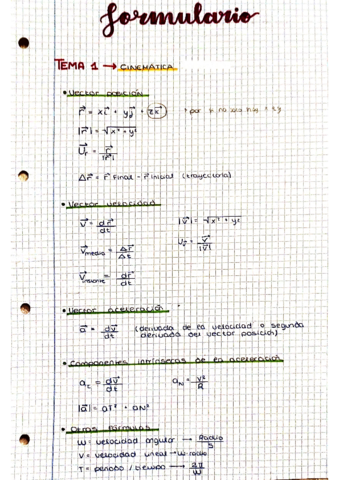 formulario
TEMA 1 → CINEMÁTICA
• Vector posición
r⃗ = xi⃗ + yj⃗ + (zk⃗)
|r⃗| = √x² + y²
U⃗r = r⃗ / |r⃗|
Δr⃗ = r⃗ Final - r⃗ inicial (trayectoria)
• Vector velocidad
v⃗ = dr⃗ / dt |v⃗| = √x² + y²
V⃗media = Δr⃗ / Δt Uv⃗ = v⃗ / |v⃗|
= dr⃗ / dt
• Vector aceleración
a⃗ = dv⃗ / dt (derivada de la velocidad o segunda
derivada del vector posición)
• Componentes intrínsecas de la aceleración
at = dv⃗ / dt aN = v² / R
|a⃗| = aT² + aN²
• Otras fórmulas
W = velocidad angular → Radio / s
V = velocidad lineal → W · radio
T = periodo / tiempo → 2π / W